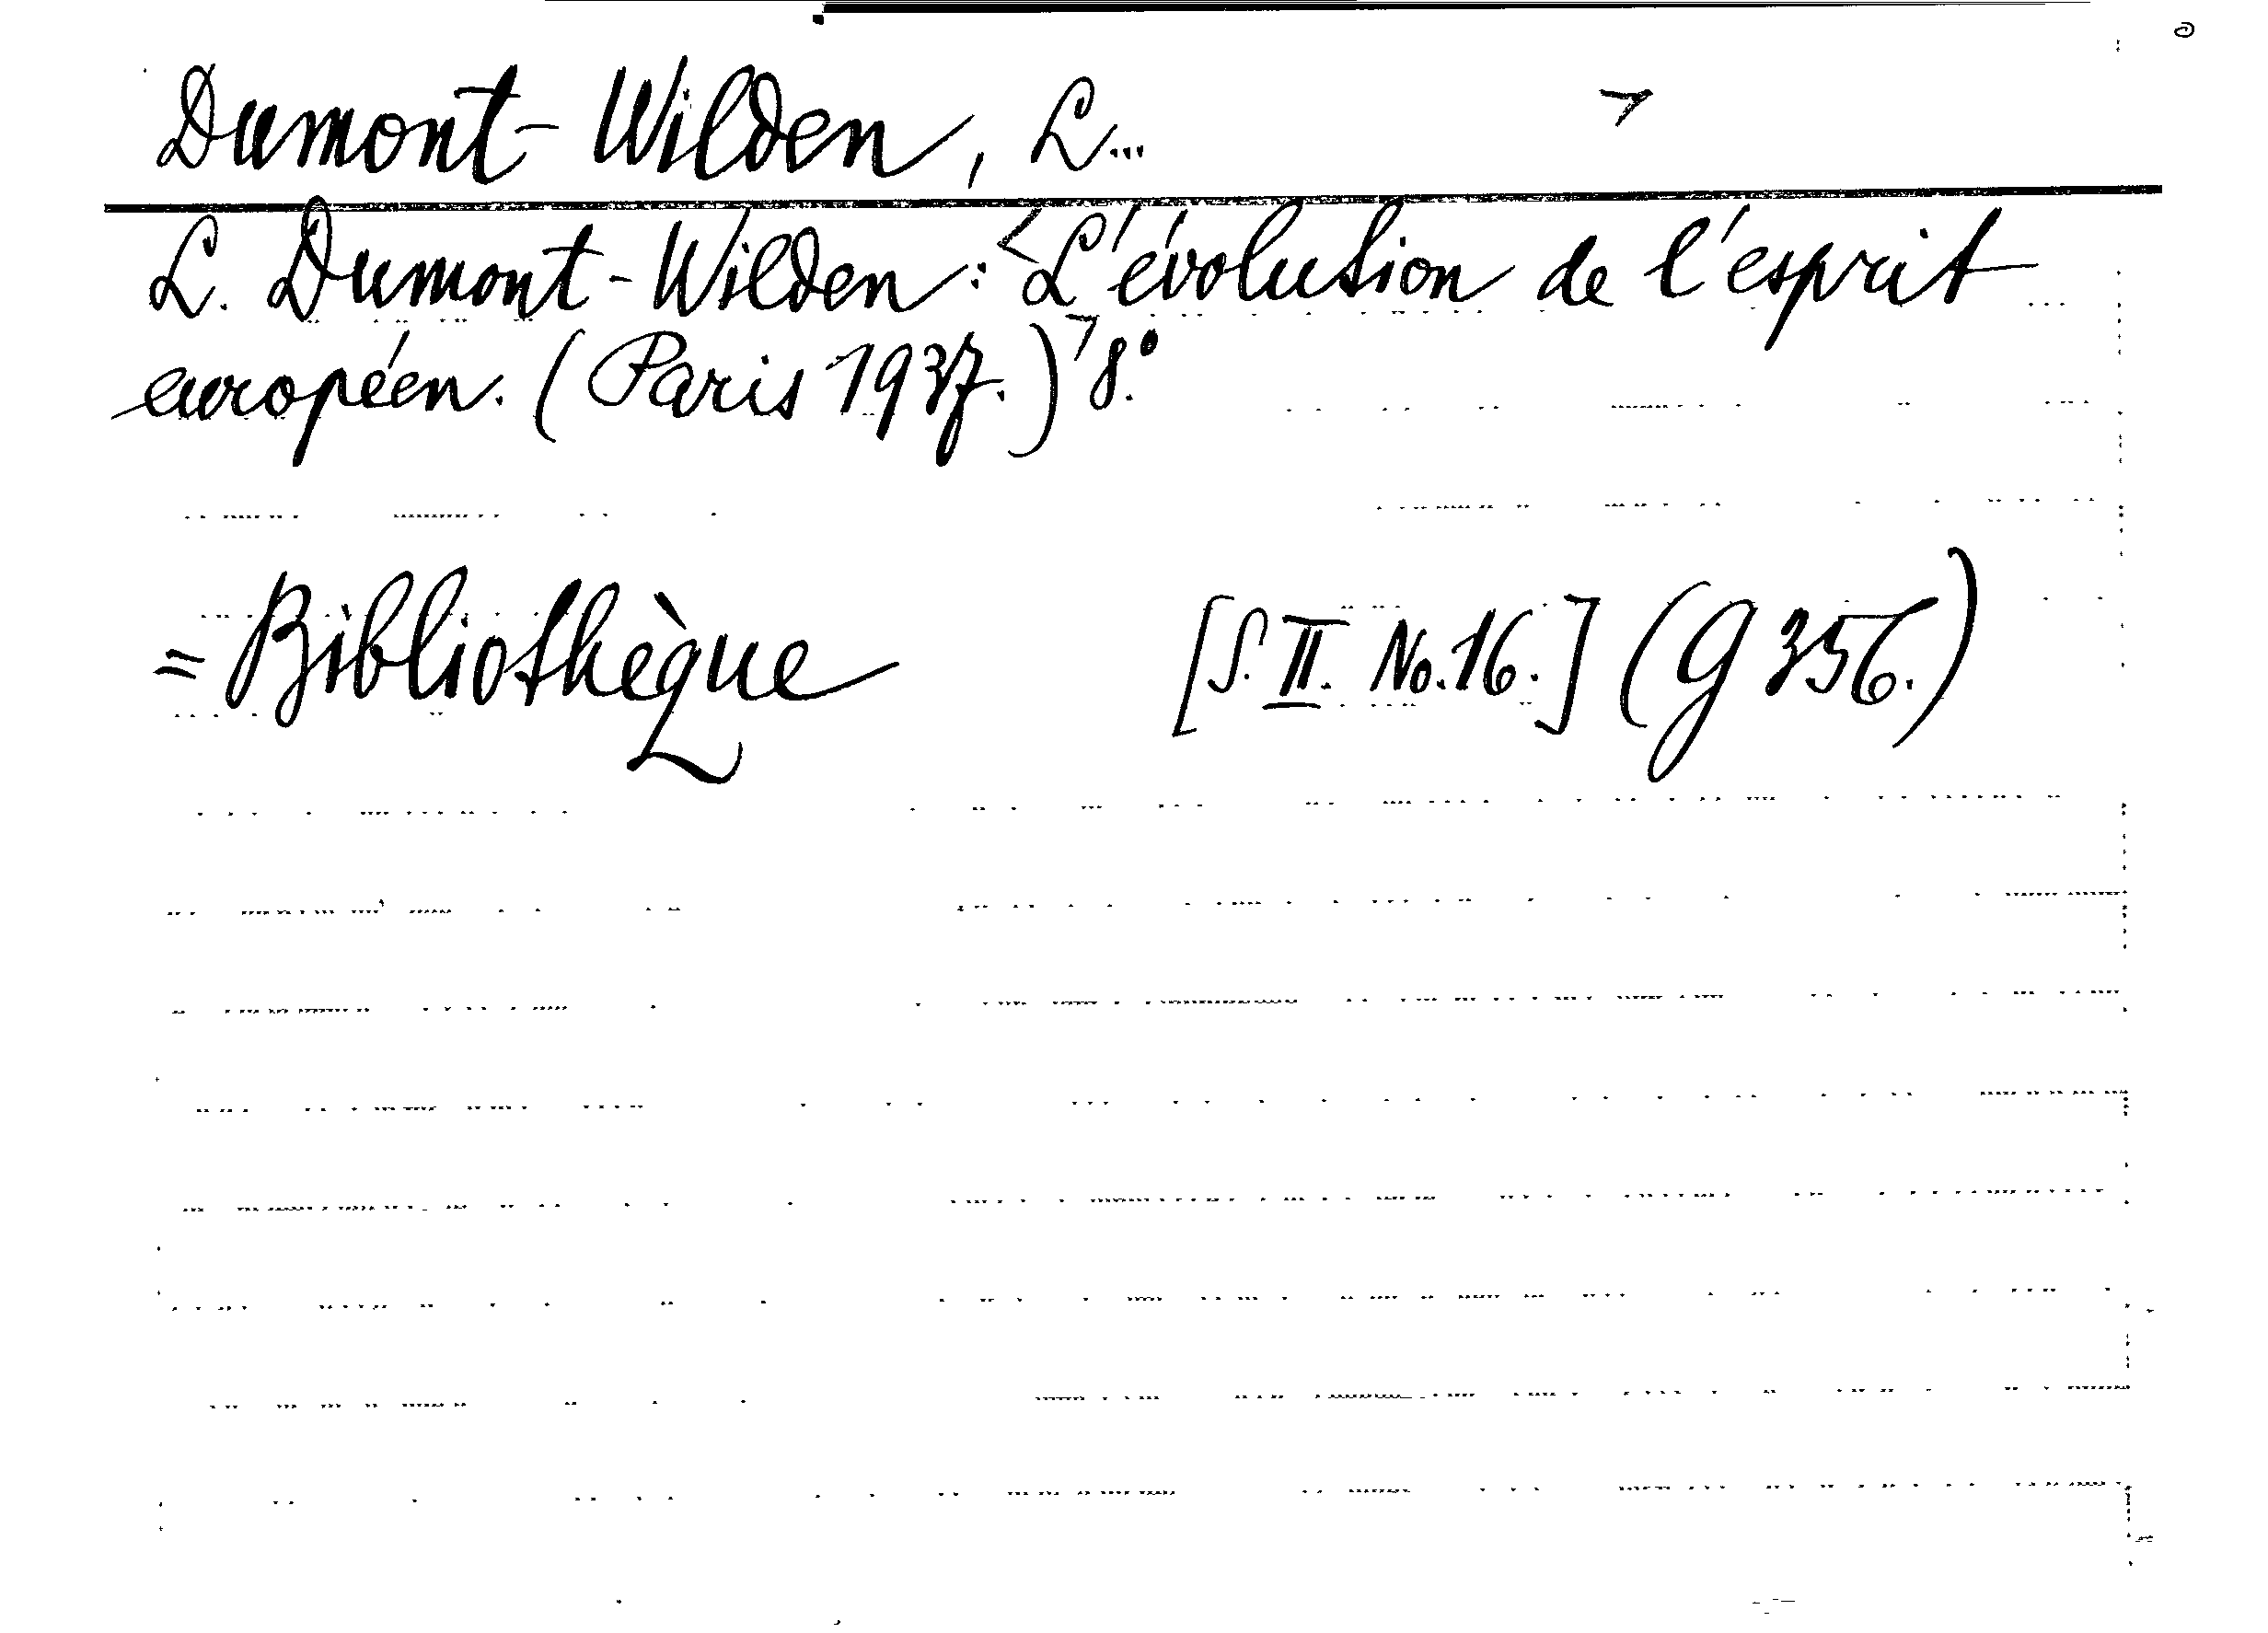 Dumont-Wilden, L...
L. Dumont-Wilden: <L'évolution de l'esprit
européen. (Paris 1937.)> 8.°
= Bibliothèque [S. II. No. 16.] (G 356.)